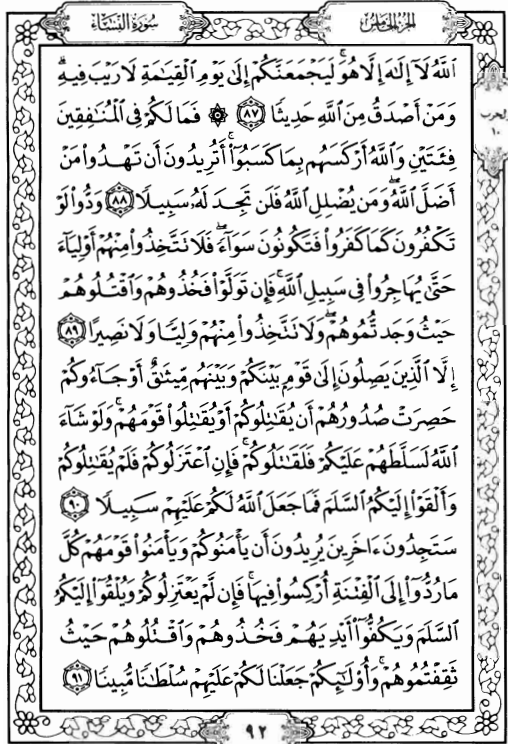 سُورَةُ النِّسَاءِ
الجزء الخامس
ٱللَّهُ لَآ إِلَٰهَ إِلَّا هُوَۚ لَيَجۡمَعَنَّكُمۡ إِلَىٰ يَوۡمِ ٱلۡقِيَٰمَةِ لَا رَيۡبَ فِيهِۗ
وَمَنۡ أَصۡدَقُ مِنَ ٱللَّهِ حَدِيثٗا ٨٧ ۞ فَمَا لَكُمۡ فِي ٱلۡمُنَٰفِقِينَ
فِئَتَيۡنِ وَٱللَّهُ أَرۡكَسَهُم بِمَا كَسَبُوٓاْۚ أَتُرِيدُونَ أَن تَهۡدُواْ مَنۡ
أَضَلَّ ٱللَّهُۖ وَمَن يُضۡلِلِ ٱللَّهُ فَلَن تَجِدَ لَهُۥ سَبِيلٗا ٨٨ وَدُّواْ لَوۡ
تَكۡفُرُونَ كَمَا كَفَرُواْ فَتَكُونُونَ سَوَآءٗۖ فَلَا تَتَّخِذُواْ مِنۡهُمۡ أَوۡلِيَآءَ
حَتَّىٰ يُهَاجِرُواْ فِي سَبِيلِ ٱللَّهِۚ فَإِن تَوَلَّوۡاْ فَخُذُوهُمۡ وَٱقۡتُلُوهُمۡ
حَيۡثُ وَجَدتُّمُوهُمۡۖ وَلَا تَتَّخِذُواْ مِنۡهُمۡ وَلِيّٗا وَلَا نَصِيرًا ٨٩
إِلَّا ٱلَّذِينَ يَصِلُونَ إِلَىٰ قَوۡمِۭ بَيۡنَكُمۡ وَبَيۡنَهُم مِّيثَٰقٌ أَوۡ جَآءُوكُمۡ
حَصِرَتۡ صُدُورُهُمۡ أَن يُقَٰتِلُوكُمۡ أَوۡ يُقَٰتِلُواْ قَوۡمَهُمۡۚ وَلَوۡ شَآءَ
ٱللَّهُ لَسَلَّطَهُمۡ عَلَيۡكُمۡ فَلَقَٰتَلُوكُمۡۚ فَإِنِ ٱعۡتَزَلُوكُمۡ فَلَمۡ يُقَٰتِلُوكُمۡ
وَأَلۡقَوۡاْ إِلَيۡكُمُ ٱلسَّلَمَ فَمَا جَعَلَ ٱللَّهُ لَكُمۡ عَلَيۡهِمۡ سَبِيلٗا ٩٠
سَتَجِدُونَ ءَاخَرِينَ يُرِيدُونَ أَن يَأۡمَنُوكُمۡ وَيَأۡمَنُواْ قَوۡمَهُمۡ كُلَّ
مَا رُدُّوٓاْ إِلَى ٱلۡفِتۡنَةِ أُرۡكِسُواْ فِيهَاۚ فَإِن لَّمۡ يَعۡتَزِلُوكُمۡ وَيُلۡقُوٓاْ إِلَيۡكُمُ
ٱلسَّلَمَ وَيَكُفُّوٓاْ أَيۡدِيَهُمۡ فَخُذُوهُمۡ وَٱقۡتُلُوهُمۡ حَيۡثُ
ثَقِفۡتُمُوهُمۡۚ وَأُوْلَٰٓئِكُمۡ جَعَلۡنَا لَكُمۡ عَلَيۡهِمۡ سُلۡطَٰنٗا مُّبِينٗا ٩١
الحزب
١٠
٩٢